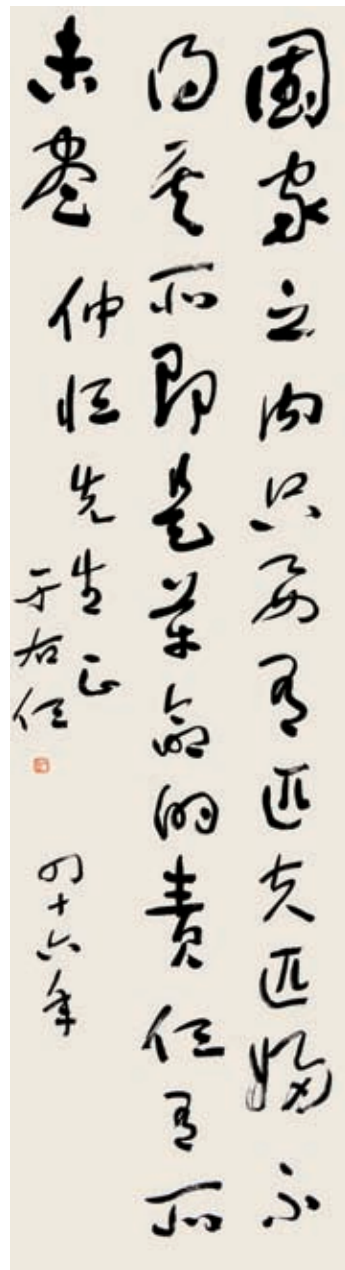 國家之內只要有匹夫匹婦不
得其所即是革命的責任有所
未盡
仲恒先生正
于右任
四十六年